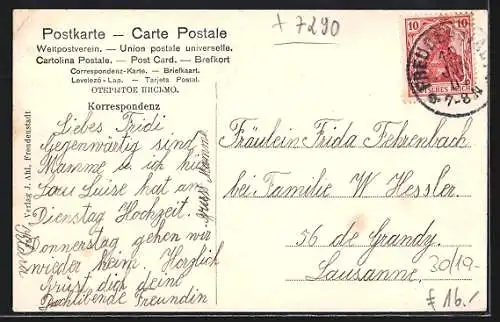 + 7290
Postkarte — Carte Postale
Weltpostverein. — Union postale universelle.
Cartolina Postale. — Post Card. — Brefkort
Correspondenz-Karte. — Briefkaart.
Levelező-Lap. — Tarjeta Postal.
ОТКРЫТОЕ ПИСЬМО.
Korrespondenz
10 10
DEUTSCHES REICH
7-8 N
Verlag J. Ahl, Freudenstadt
Liebes Fridi
Gegenwärtig sind
Mamme u. ich hier
Luise hat am
Dienstag Hochzeit.
Donnerstag gehen wir
wieder heim. Herzlich
grüst dich deine
Freundin
Klara
gruss Mamme
Fräulein Frida Fehrenbach
bei Familie W Hessler.
56 de Grandy.
Lausanne.
30/19-
£ 16.-